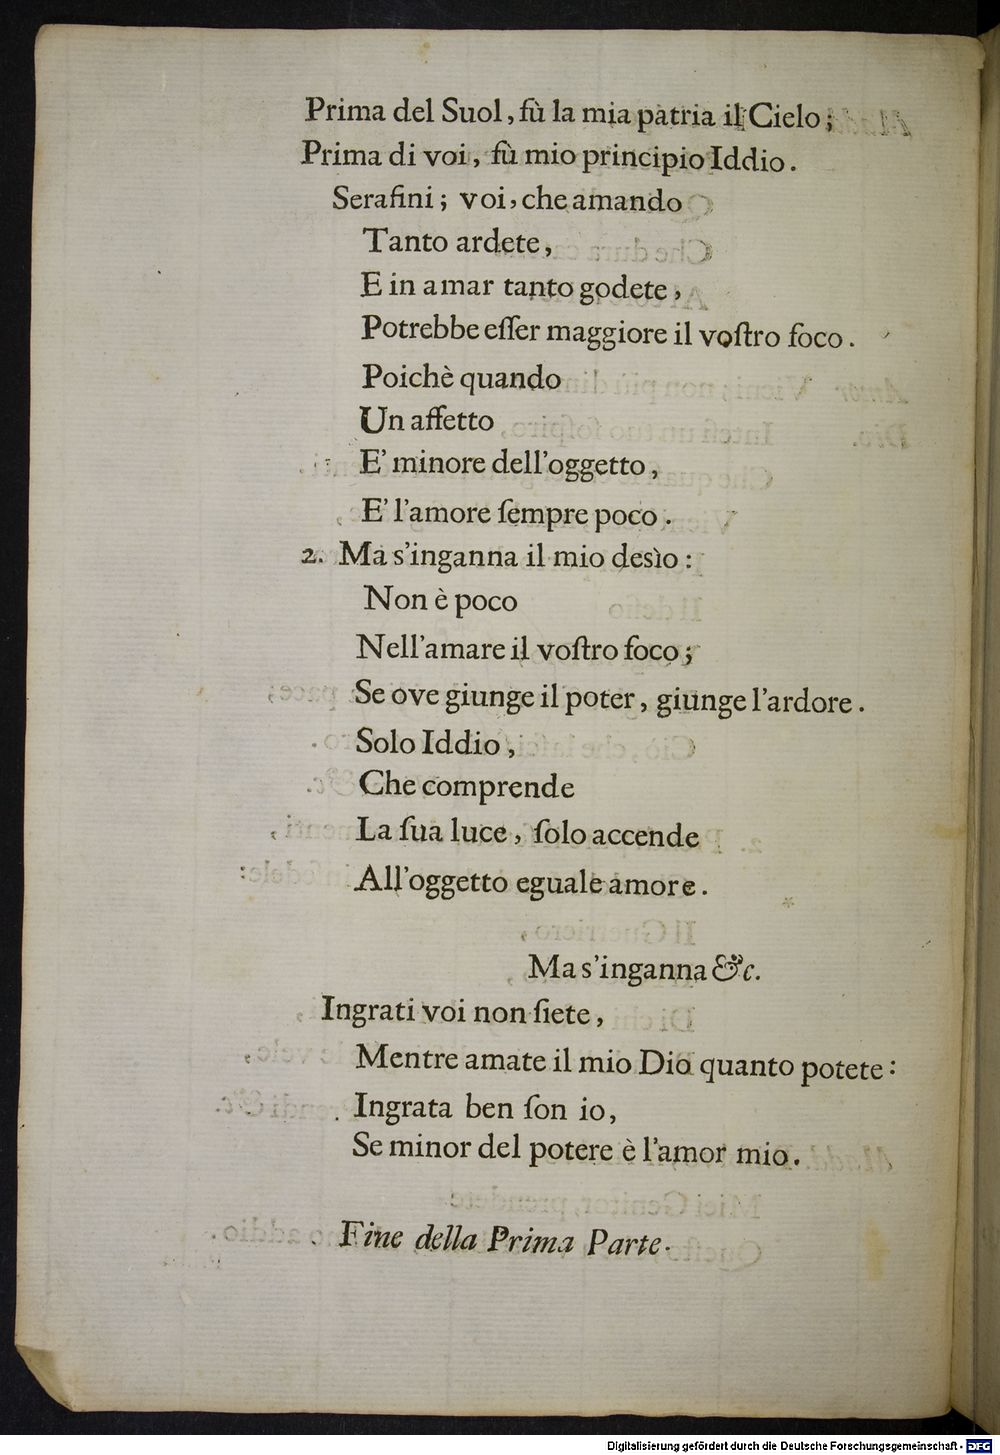 Prima del Suol, fù la mia patria il Cielo;
Prima di voi, fù mio principio Iddio.
Serafini; voi, che amando
Tanto ardete,
E in amar tanto godete,
Potrebbe eſſer maggiore il voſtro foco.
Poichè quando
Un affetto
E' minore dell'oggetto,
E' l'amore ſempre poco.
2. Ma s'inganna il mio desìo:
Non è poco
Nell'amare il voſtro foco;
Se ove giunge il poter, giunge l'ardore.
Solo Iddio,
Che comprende
La ſua luce, ſolo accende
All'oggetto eguale amore.
Ma s'inganna &c.
Ingrati voi non ſiete,
Mentre amate il mio Dio quanto potete:
Ingrata ben ſon io,
Se minor del potere è l'amor mio.
Fine della Prima Parte.
Digitalisierung gefördert durch die Deutsche Forschungsgemeinschaft - DFG